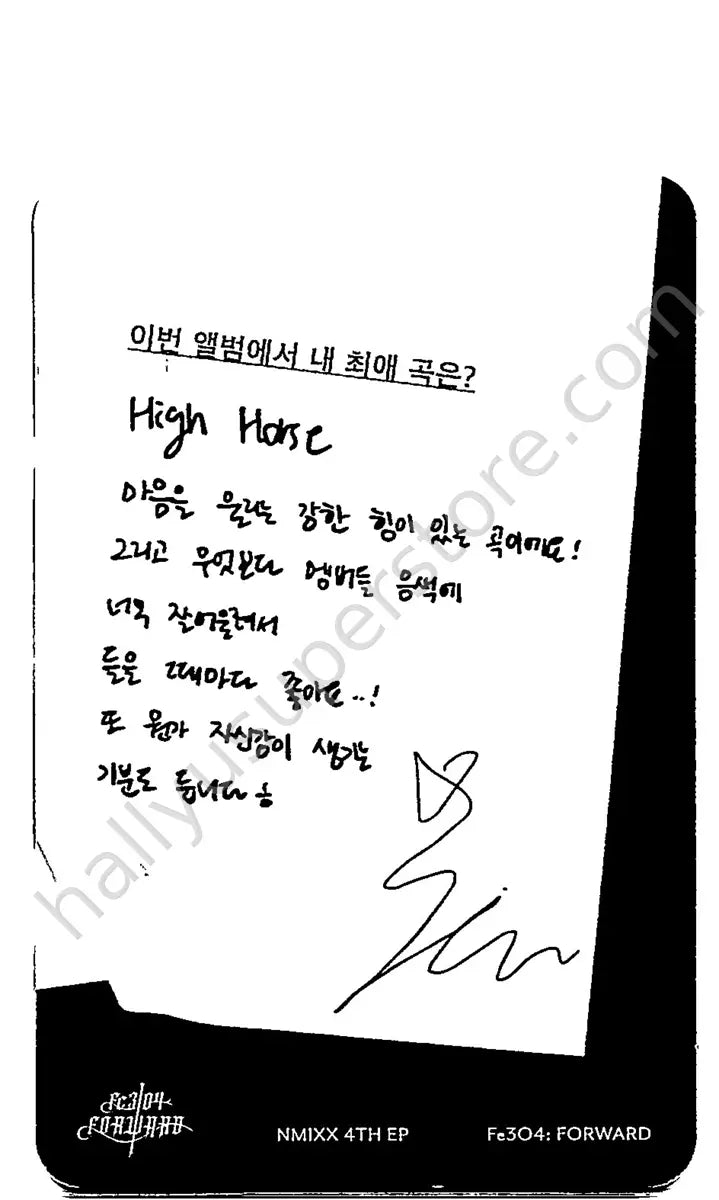 이번 앨범에서 내 최애 곡은?
High Horse
마음을 울리는 강한 힘이 있는 곡이에요!
그리고 무엇보다 멤버들 음색에
너무 잘어울려서
들을 때마다 좋아요..!
또 뭔가 자신감이 생기는
기분도 듭니다 ㅎ
hallyusuperstore.com
Fe3O4
FORWARD
NMIXX 4TH EP
Fe3O4: FORWARD